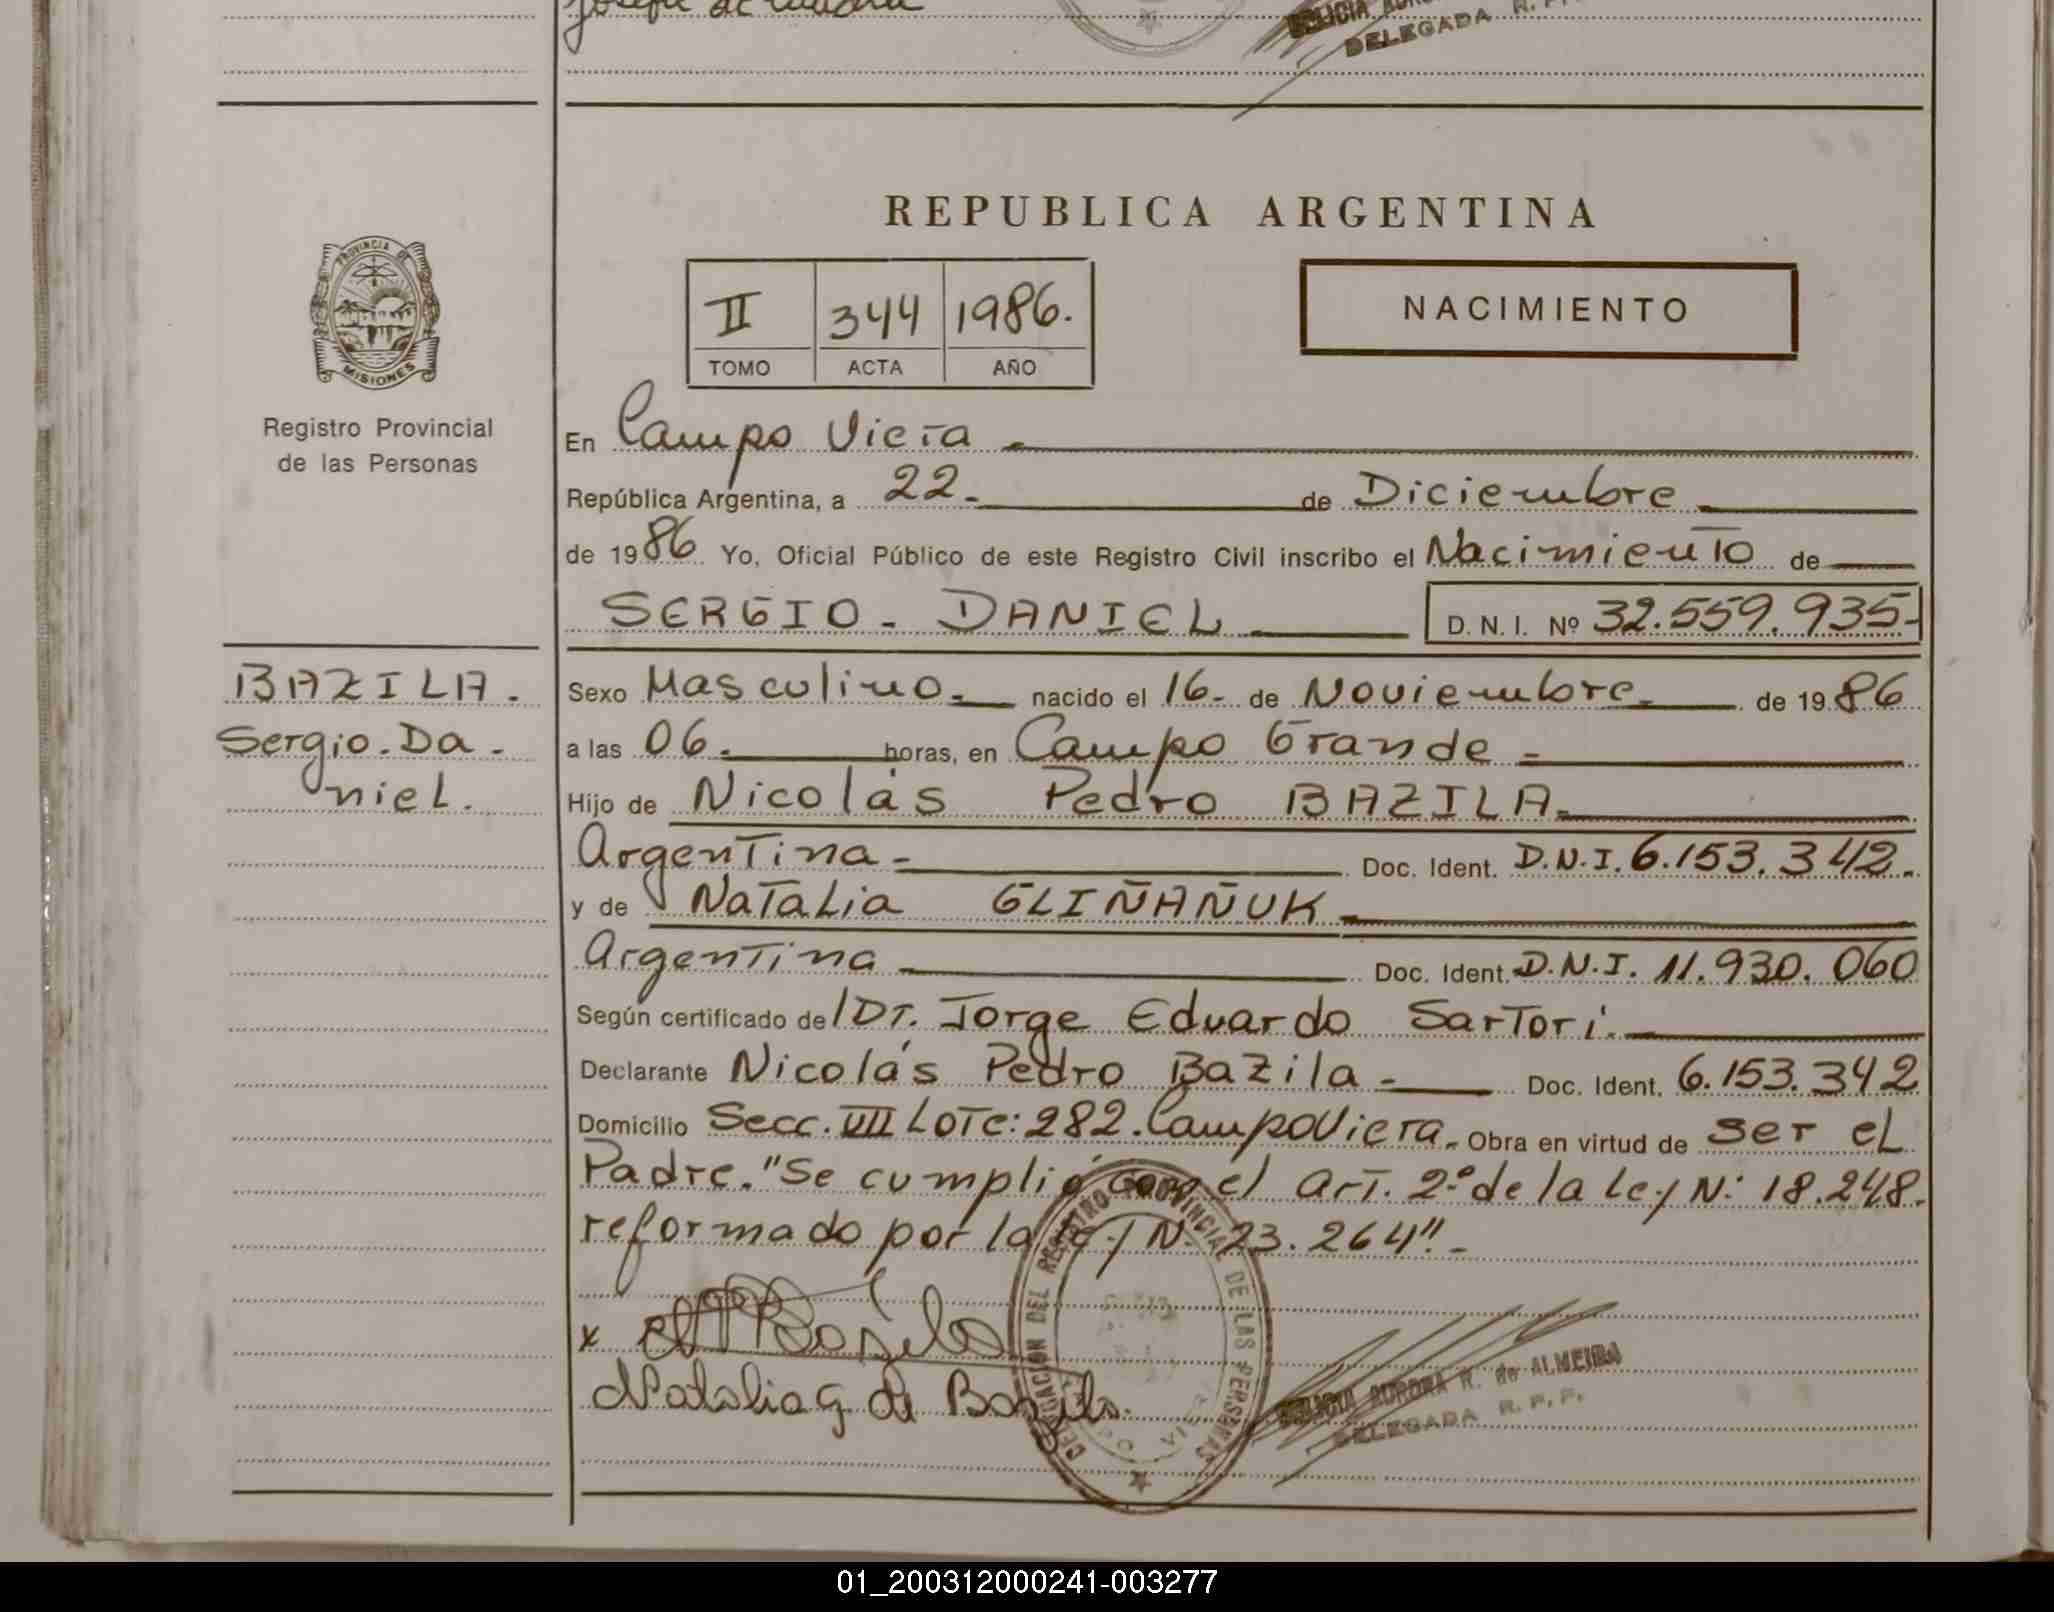 DELEGADA R. P.
REPUBLICA ARGENTINA
II 344 1986.
TOMO ACTA AÑO
NACIMIENTO
PROVINCIA DE
MISIONES
Registro Provincial
de las Personas
En Campo Viera
República Argentina, a 22. de Diciembre
de 1986 Yo, Oficial Público de este Registro Civil inscribo el Nacimiento de
SERGIO - DANIEL D.N.I. Nº 32.559.935-
BAZILA.
Sergio. Da-
niel.
Sexo Masculino. nacido el 16- de Noviembre. de 1986
a las 06. horas, en Campo Grande
Hijo de Nicolás Pedro BAZILA.
Argentina - Doc. Ident. D.N.I. 6.153.342.
y de Natalia GLIÑAÑUK
Argentina Doc. Ident. D.N.I. 11.930.060
Según certificado de/Dr. Jorge Eduardo Sartori.
Declarante Nicolás Pedro Bazila - Doc. Ident. 6.153.342
Domicilio Secc. VIII Lote: 282. Campo Viera. Obra en virtud de ser el
Padre. "Se cumplió con el Art. 2º de la Ley Nº 18.248.
reformado por la Ley Nº 23.264".-
x Bazila
Natalia G de Bazila.
DELEGACION DEL REGISTRO PROVINCIAL DE LAS PERSONAS
CAMPO VIERA
AURORA R. de ALMEIDA
DELEGADA R. P. P.
01_200312000241-003277